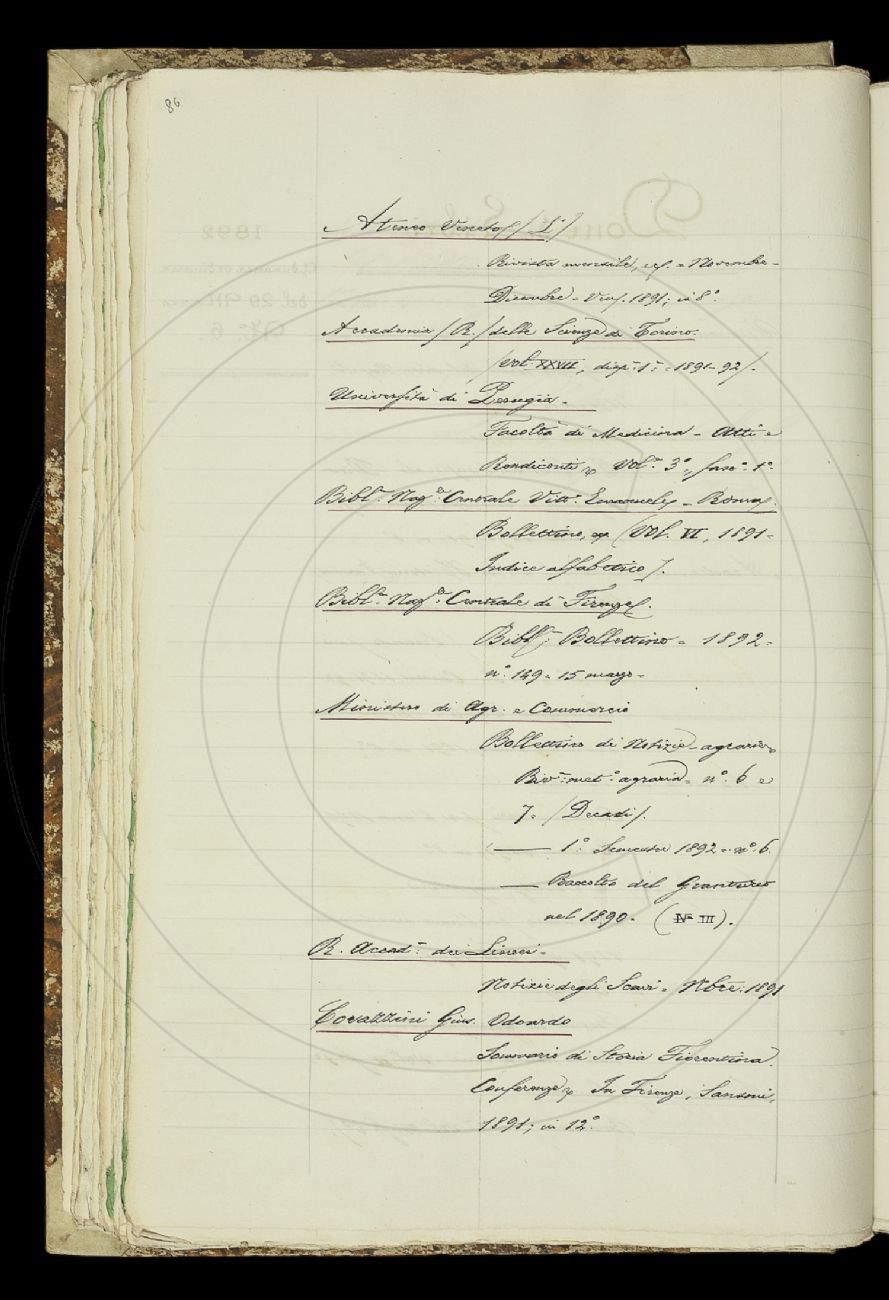 86
Ateneo Veneto (L')
Rivista mensile, ecc. = Novembre-
Dicembre = Ven. 1891; in 8°.
Accademia (R.) delle Scienze di Torino.
(Vol. XXVII, disp. 1ª = 1891-92).
Università di Perugia.
Facoltà di Medicina - Atti e
Rendiconti, Vol. 3°, fasc. 1°.
Bibl.ª Naz.ª Centrale Vitt. Emanuele - Roma.
Bollettino, (Vol. VI, 1891-
Indice alfabetico).
Bibl.ª Naz.ª Centrale di Firenze.
Bollettino = 1892 =
n° 149 = 15 marzo.
Ministero di Agr. e Commercio
Bollettino di Notizie agrarie
Riv. met. agraria = n° 6 e
7 = (Decadi).
—— 1° Semestre 1892 = n° 6.
—— Raccolto del Granturco
nel 1890. (N° III).
R. Accad. dei Lincei.
Notizie degli Scavi = 9bre: 1891
Corazzini Gius. Odoardo
Sommario di Storia Fiorentina.
Conferenze In Firenze, Sansoni,
1891; in 12°.